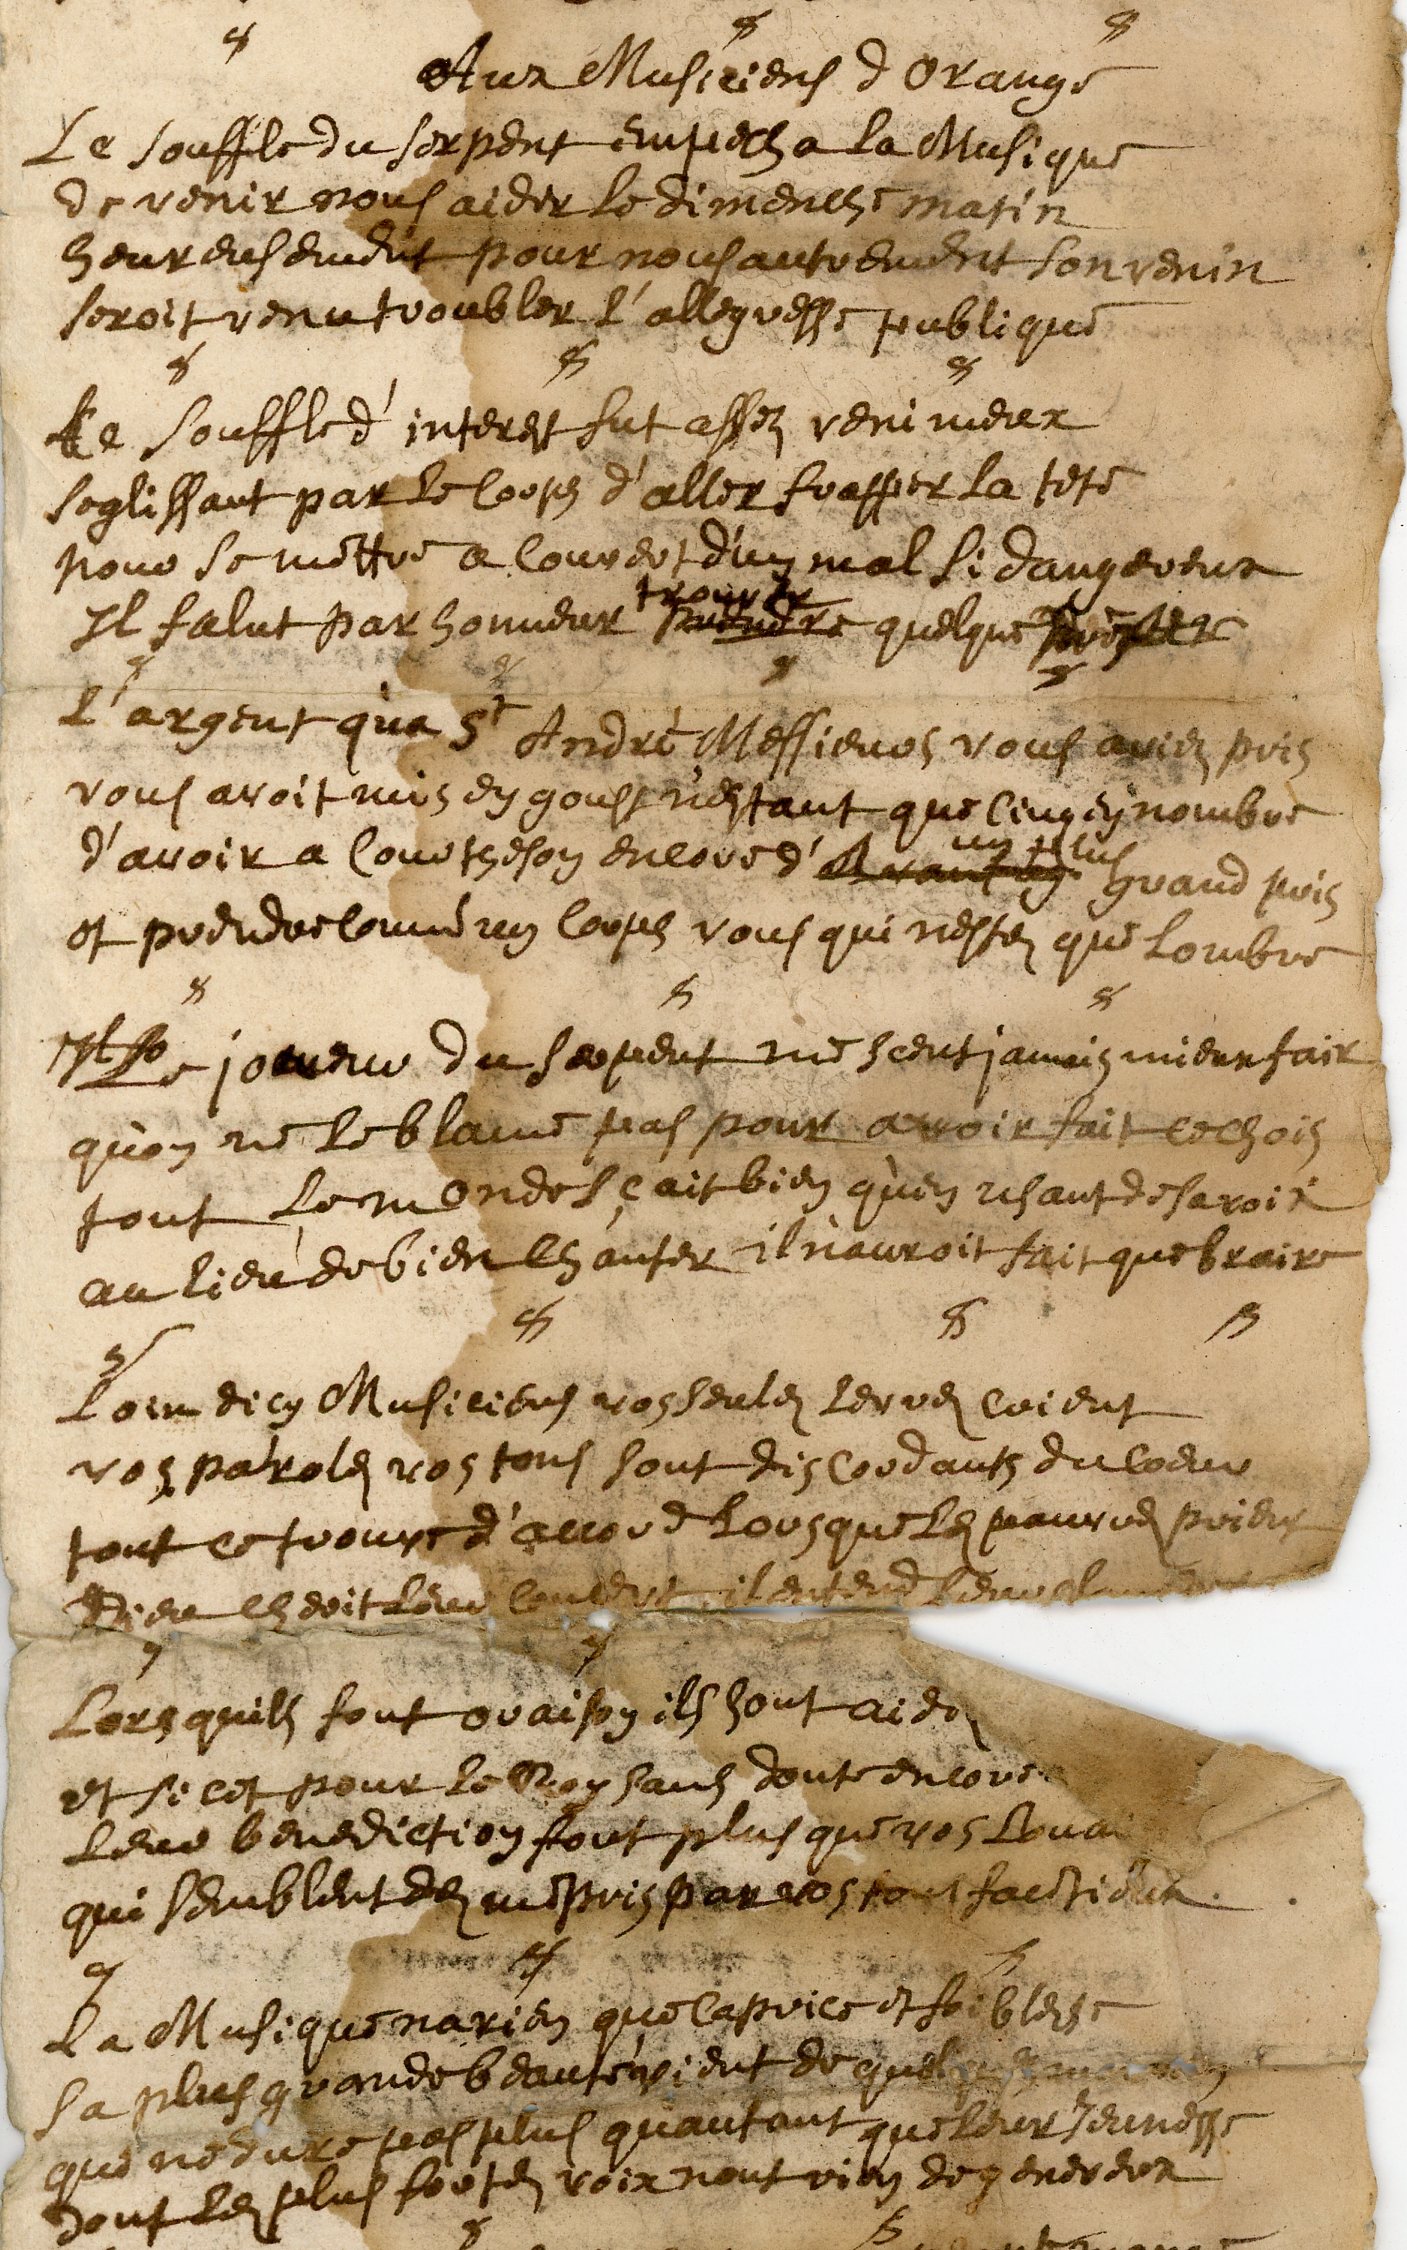 Aux Musiciens d Orange
Le souffle du serpent empecha la Musique
de venir nous aider le dimenche matin
heureusement pour nous autrement son venin
seroit venu troubler l'allegresse publique
Le souffle d'interest fut assez venimeux
se glissant par le corps d'aller frapper la tete
pour se mettre a couvert d'un mal si dangereux
Il falut par honneur trouver quelque
L'argent qua St André Messieurs vous aviez pris
vous avoit mis en goust n'estant que cinq en nombre
d'avoir a Courtheson encore d' un plus grand pris
et prendre comme un corps vous qui nestez que lombre
Le joueur du serpent ne sceut jamais mieux fair
qu'on ne le blame pas pour avoir fait ce chois
tout le monde sçait bien qu'en usant de sa voix
au lieu de bien chanter il n'auroit fait que braire
Loin dicy Musiciens vos seules levres crient
vos paroles vos tons sont discordants du coeur
tout ce trouve d'accord lorsque les pauvres prient
Dieu cherit leur concert il entend leur
Lorsquils font oraison ils sont aidez
et si cet pour le Roy sans doute encore
leur benediction font plus que vos
qui semblent des mepris par vos tons factieux
La Musique na rien que caprice et foiblesse
sa plus grande beauté vient de
que ne dure pas plus quautant que leur Jeunesse
dont les plus fortes voix nont rien de genereux